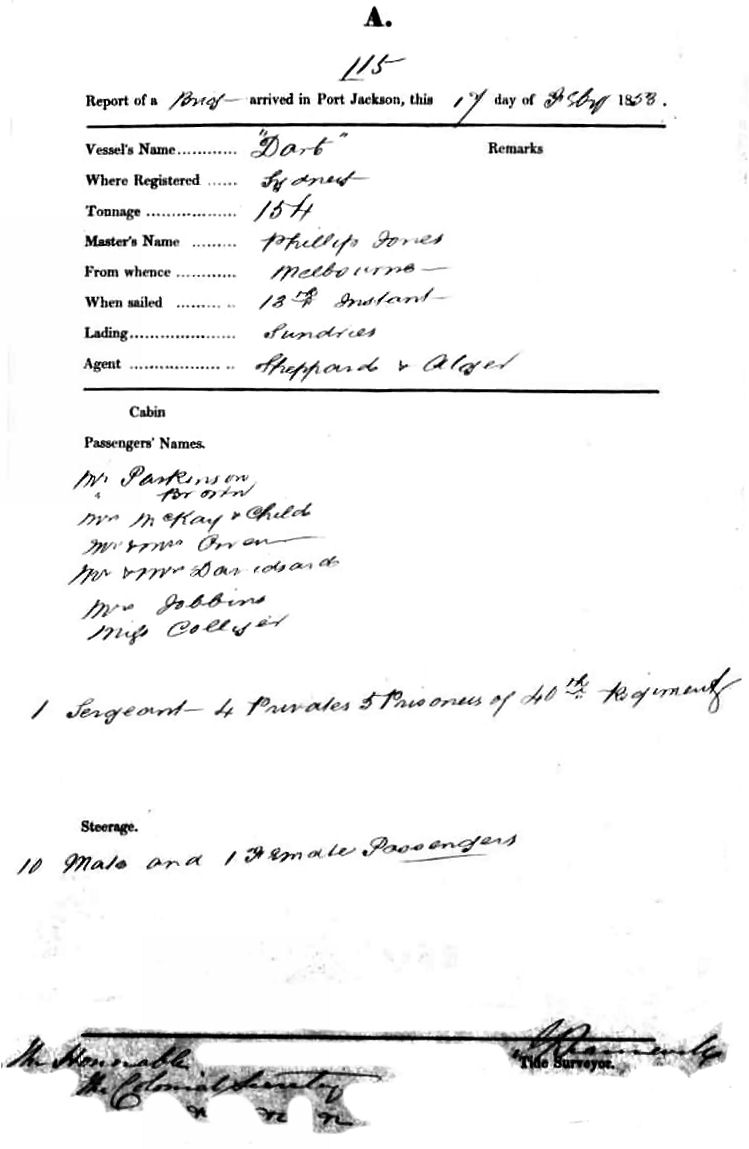 A.
115
Report of a Brig arrived in Port Jackson, this 17 day of Feby 1853.
Vessel's Name............ "Dart" Remarks
Where Registered ...... Sydney
Tonnage .................. 154
Master's Name ......... Phillip Jones
From whence ............ Melbourne
When sailed ............ 13th Instant
Lading..................... Sundries
Agent ..................... Sheppard & Alger
Cabin
Passengers' Names.
Mr Parkinson
" Brown
Mrs McKay & Child
Mr & Mrs Owen
Mr & Mrs Davidsard
Mrs Jobbins
Miss Collyer
1 Sergeant 4 Privates 5 Prisoners of 40th Regiment
Steerage.
10 Male and 1 Female Passengers
The Honorable
The Colonial Secretary
Tide Surveyor.